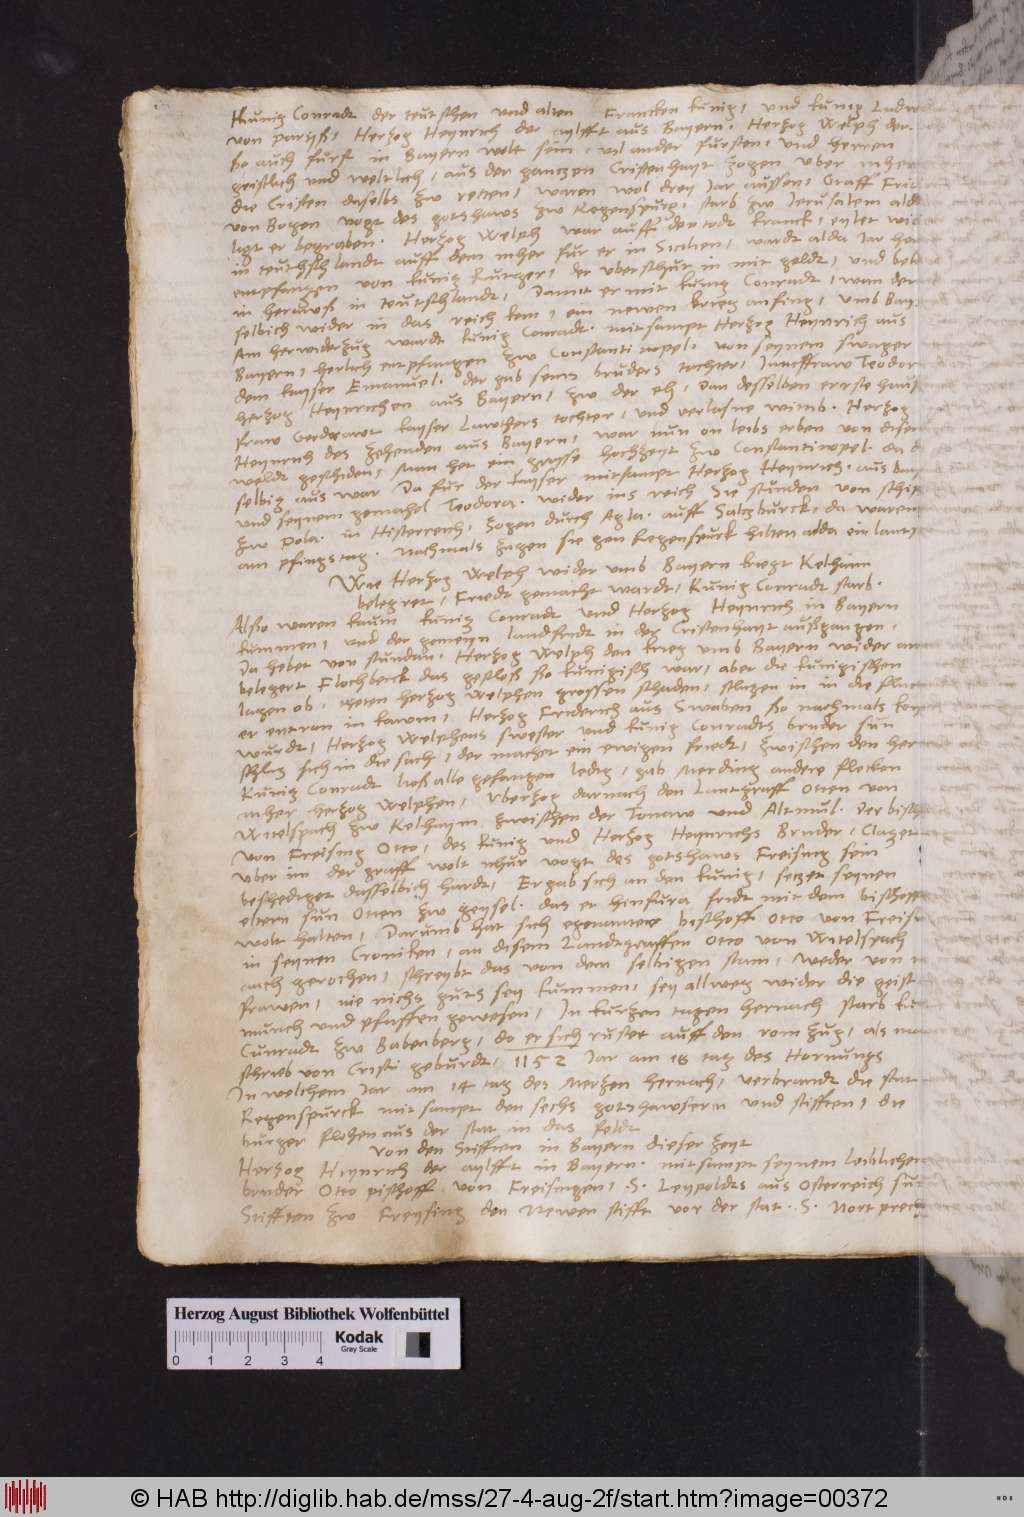 Kunig Conradt der teutschen und alten Francken kunig, und kunig Ludw
von pariß, Herzog Heynrich der aylfft aus Bayern, Herzog Welph der
so auch furst in Bayern wolt sein, vil ander fursten, und herren
geistlich und weltlich, aus der gantzen Cristenhayt zogen uber mher
die Cristen daselbs zw retten, waren wol drey Jar aussen, Graff Frid
von Bogen vogt des gotshaws zw Regenspurg, starb zw Jerusalem alda
ligt er begraben. Herzog Welph war auff den todt kranck, eylet wid
in teutschlandt auff dem mher fur er in Sicilien, wardt alda
empfangen von kunig Rutger, der uberschut in mit geldt, und
in herauß in teutschlandt, Damit er mit kunig Conradt, wan der
selbich wider in das reich kem, ein newen krieg anfing, umb Bay
Am herwiderzug wardt kunig Conradt mitsampt Herzog Heynrich aus
Bayern, herlich empfangen zw Constantinopel, von seynem swager
dem kayser Emanuel, der gab seins bruders tochter, Junckfraw Teodor
herzog Heynrichen aus Bayern, zw der eh, Dan desselben errste haus
fraw Gerdrawt kayser Lawthers tochter, und verlasne witib Herzog
Heynrichs des zehenden aus Bayern, war nun on leibs erben von diser
weldt geschiden, man het ein grosse hochzeyt zw Constantinopel da d
selbig aus war Da fur der kayser mitsampt Herzog Heynrich aus Bay
und seynem gemahel Teodora wider ins reich Sie stunden von schif
zw Pola in Histerreich, zogen durch Agla auff Saltzburck, da waren
am pfingstag. Nachmals zugen sie gen Regenspurk hilten alda ein lant
Wie Herzog Welph wider umb Bayern kriegt Kelhaim
belegret, Friedt gemacht wardt, Kunig Conradt starb.
Also waren kaum kunig Conradt und Herzog Heynrich in Bayern
kummen, und der gemeyn landfridt in der Cristenhayt außgangen,
Da hebet von stundan Herzog Welph den krieg umb Bayern wider an
belegert Flochberck das geschloß so kunigisch war, aber die kunigischen
lagen ob, theten herzog Welphen grossen schaden, schlugen in in die fluc
er entran in kawm, Herzog Friderich aus Swaben so nachmals
wurdt, Herzog Welphens swester und kunig Conradts bruder sun
schlug sich in die sach, der machet ein ewigen friedt, zwischen den her
Kunig Conradt ließ alle gefangen ledig, gab Merding andere flecken
mher herzog Welphen, Uberzog darnach den Lantgraff Otten von
Witelspach zw Kelhaym zwischen der Tonaw und Altmul. Der bisch
von Freising Otto, des kunig und Herzog Heynrichs Bruder, Claget
uber in der graff wolt nhur vogt des gotshaws Freising sein
beschediget dasselbich hardt, Er gab sich an den kunig, setzet seynen
eltern sun Otten zw geysel, das er hinfura fridt mit dem bischoff
wolt halten, Darumb hat sich egenanter bischoff Otto von Freis
in seynen Croniken, an disem Landtgraffen Otto von Witelspach
auch gerochen, schreybt das von dem selbigen stam, weder von
frawen, nie nichs guts sey kummen, sey allweg wider die geist
munch und pfaffen gewesen, In kurzen tagen hernach starb ku
Cunradt zw Babenberg, do er sich rustet auff den rom zug, als ma
schrieb von Cristi geburdt, 1152 Jar am 18 tag des Hornungs
In welchem Jar am 14 tag des Merzen hernach, verbrandt die stat
Regenspurck mitsampt den sechs gotshawsern und stifften, die
burger flohen aus der stat in das feldt
Von den Stifften in Bayern dieser zeyt
Herzog Heynrich der aylfft in Bayern mitsampt seynem leiblichen
bruder Otto pischoff von Freisingen, S. Leypoldts aus Osterreich sun
Stifften zw Freysing den Newen stifft vor der stat. S. Nortprech
Herzog August Bibliothek Wolfenbüttel
Kodak
Gray Scale
0 1 2 3 4
© HAB http://diglib.hab.de/mss/27-4-aug-2f/start.htm?image=00372